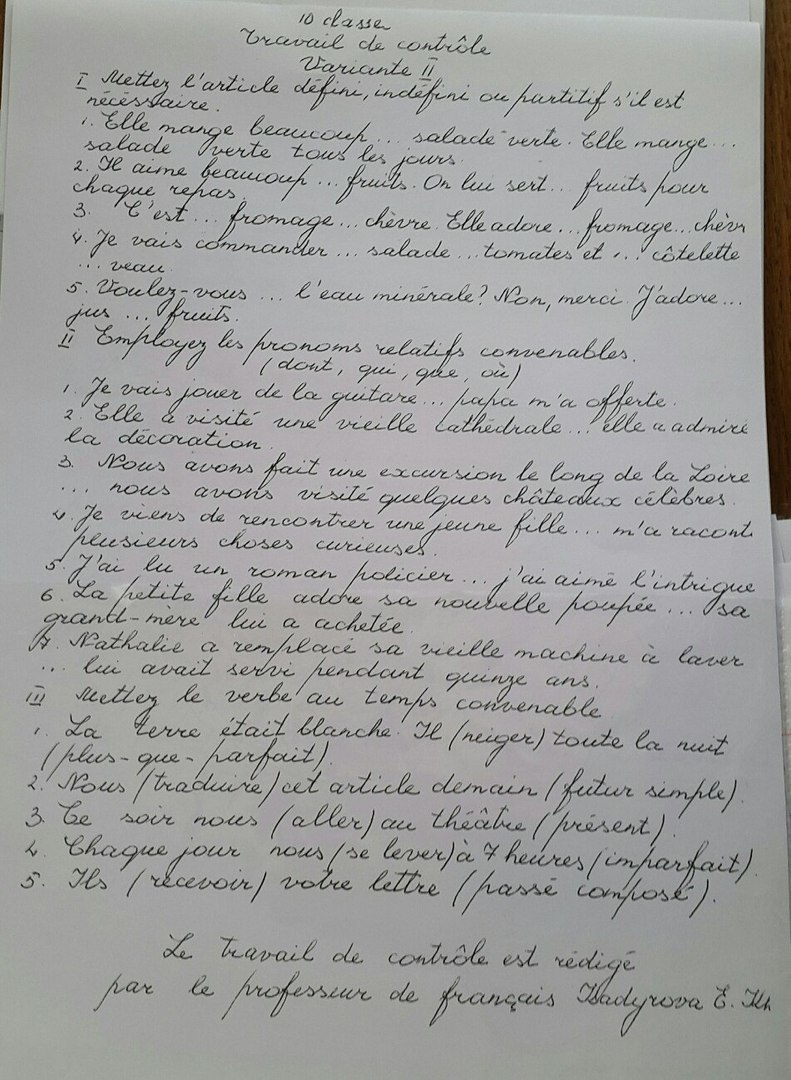 10 classe
Travail de contrôle
Variante II
I Mettez l'article défini, indéfini ou partitif s'il est
nécéssaire.
1. Elle mange beaucoup ... salade verte. Elle mange ...
salade verte tous les jours.
2. Il aime beaucoup ... fruits. On lui sert ... fruits pour
chaque repas.
3. C'est ... fromage ... chèvre. Elle adore ... fromage ... chèvr
4. Je vais commander ... salade ... tomates et ... côtelette
... veau.
5. Voulez-vous ... l'eau minérale? Non, merci. J'adore ...
jus ... fruits.
II Employez les pronoms relatifs convenables.
(dont, qui, que, où)
1. Je vais jouer de la guitare ... papa m'a offerte.
2. Elle a visité une vieille cathédrale ... elle a admiré
la décoration.
3. Nous avons fait une excursion le long de la Loire
... nous avons visité quelques châteaux célèbres.
4. Je viens de rencontrer une jeune fille ... m'a racont
plusieurs choses curieuses.
5. J'ai lu un roman policier ... j'ai aimé l'intrigue
6. La petite fille adore sa nouvelle poupée ... sa
grand-mère lui a achetée.
7. Nathalie a remplacé sa vieille machine à laver
... lui avait servi pendant quinze ans.
III Mettez le verbe au temps convenable
1. La terre était blanche. Il (neiger) toute la nuit
(plus-que-parfait).
2. Nous (traduire) cet article demain (futur simple).
3. Ce soir nous (aller) au théâtre (présent).
4. Chaque jour nous (se lever) à 7 heures (imparfait).
5. Ils (recevoir) votre lettre (passé composé).
Le travail de contrôle est rédigé
par le professeur de français E.